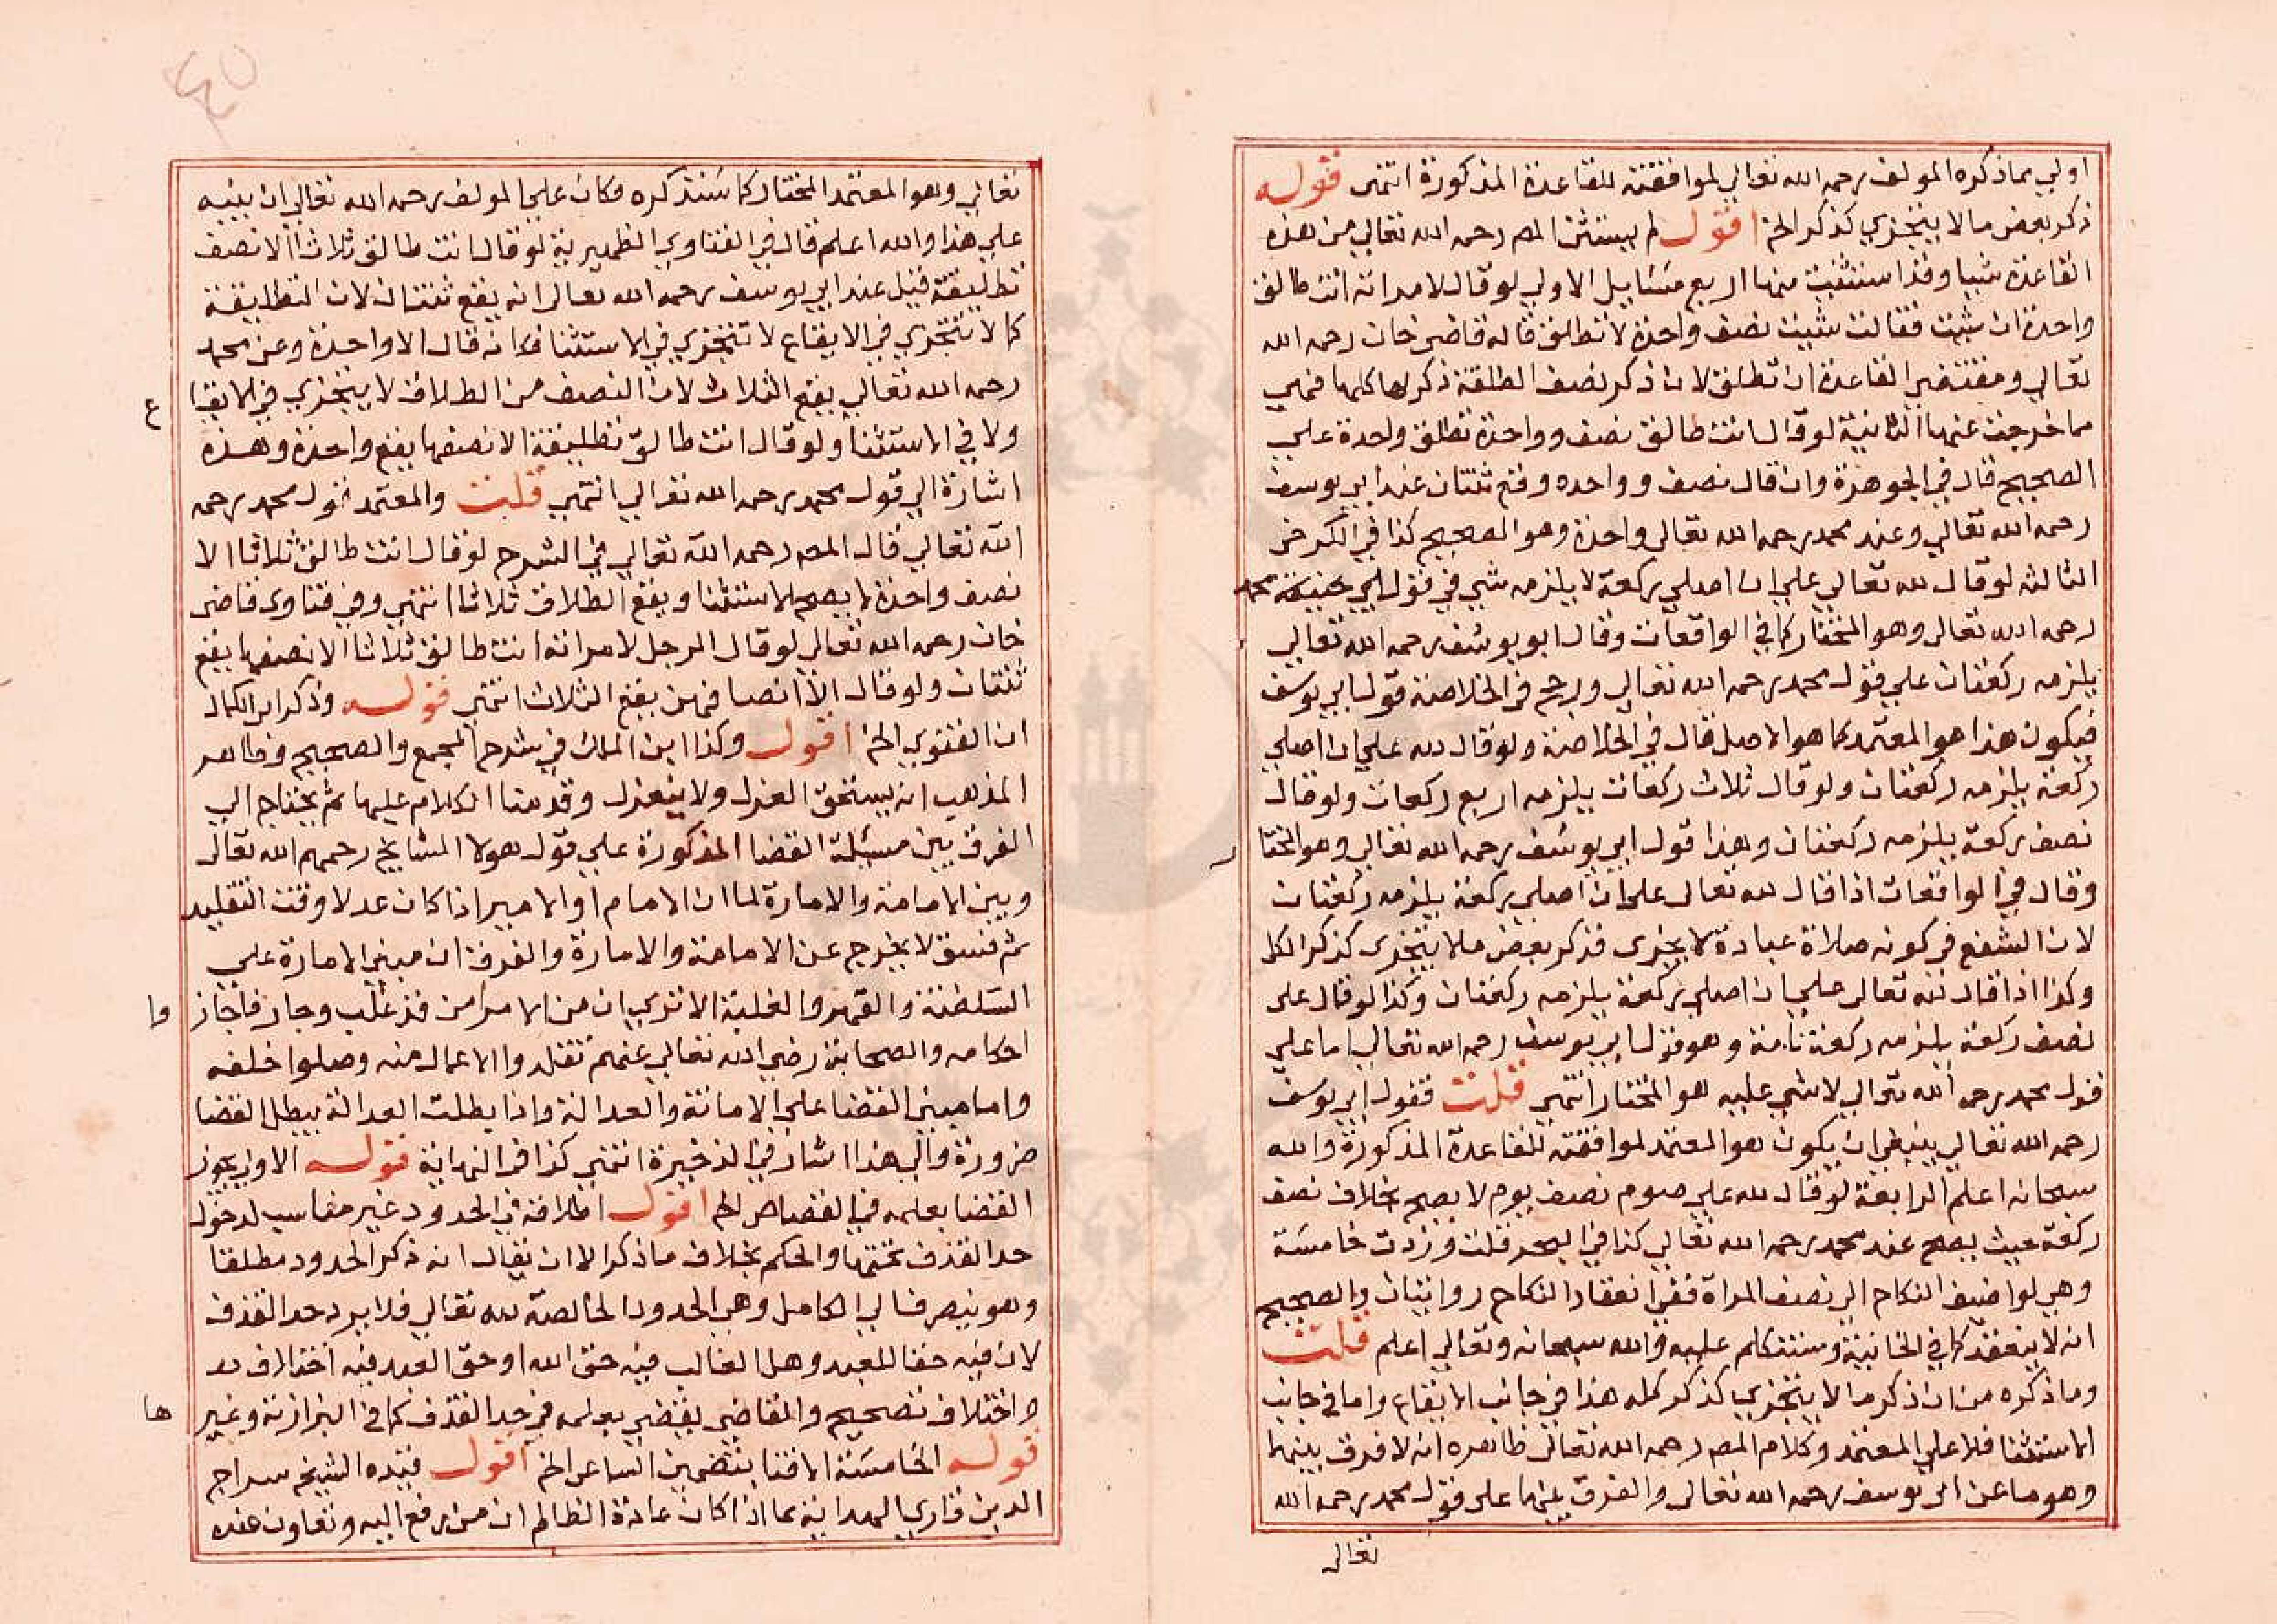 اولي بماذكره المولف رحمه الله تعالي لموافقته للقاعدة المذكورة انتهى قوله
ذكر بعض مالا يتجزي كذكر الخ اقول لم يستثن المص رحمه الله تعالي من هذه
القاعدة شيا وقد استثنيت منها اربع مسايل الاولي لو قال لامراته انت طالق
واحدة ان شيت فقالت شيت نصف واحدة لا تطلق قاله قاضي خان رحمه الله
تعالي ومقتضي القاعدة ان تطلق لان ذكر نصف الطلقة ذكر لها كلها فهي
مما خرجت عنها الثانية لو قال انت طالق نصف وواحدة تطلق واحدة علي
الصحيح قال في الجوهرة وان قال نصف وواحده وقع ثنتان عند ابي يوسف
رحمه الله تعالي وعند محمد رحمه الله تعالى واحدة وهو الصحيح كذا في الكرخي
الثالثة لو قال لله تعالي علي ان اصلي ركعة لا يلزمه شي في قول ابي حنيفة محمد
رحمه الله تعالى وهو المختار كما في الواقعات وقال ابو يوسف رحمه الله تعالي
يلزمه ركعتان علي قول محمد رحمه الله تعالي ورجح في الخلاصة قول ابي يوسف
فيكون هذا هو المعتمد كما هو الاصل قال في الخلاصة ولو قال لله علي ان اصلي
ركعة يلزمه ركعتان ولو قال ثلاث ركعات يلزمه اربع ركعات ولو قال
نصف ركعة يلزمه ركعتان وهذا قول ابي يوسف رحمه الله تعالي وهو المختا
ر
وقال في الواقعات اذا قال لله تعالى علي ان اصلي ركعة يلزمه ركعتان
لان الشفع في كونه صلاة عبادة لا يتجزى فذكر بعض ملا يتجزى كذكر الكل
وكذا اذا قال لله تعالى علي ان اصلي ركعة يلزمه ركعتان وكذا لو قال على
نصف ركعة يلزمه ركعة تامة وهو قول ابي يوسف رحمه الله تعالي اما علي
قول محمد رحمه الله تعالي لا شي عليه هو المختار انتهى قلت فقول ابي يوسف
رحمه الله تعالي ينبغي ان يكون هو المعتمد لموافقته للقاعدة المذكورة والله
سبحانه اعلم الرابعة لو قال لله علي صوم نصف يوم لا يصح بخلاف نصف
ركعة حيث يصح عند محمد رحمه الله تعالي كذا في البحر قلت وزدت خامسة
وهي لو اضيف النكاح الي نصف المراة ففي انعقاد النكاح روايتان والصحيح
انه لا ينعقد كما في الخانية وسنتكلم عليه والله سبحانه وتعالي اعلم قلت
وما ذكره من ان ذكر ما لا يتجزي كذكر كله هذا في جانب الايقاع واما في جانب
الاستثنا فلا علي المعتمد وكلام المص رحمه الله تعالى ظاهره انه لا فرق بينهما
وهو ما عن ابي يوسف رحمه الله تعالى والفرق بينهما على قول محمد رحمه الله
تعالى
٤٥
تعالي وهو المعتمد المختار كما سنذكره فكان علي المولف رحمه الله تعالي ان يبنيه
علي هذا والله اعلم قال في الفتاوي الظهيرية لو قال انت طالق ثلاثا الا نصف
تطليقة قيل عند ابي يوسف رحمه الله تعالى انه يقع ثنتان لان التطليقة
كما لا تتجزي في الايقاع لا تتجزي في الاستثنا فكانه قال الا واحدة وعن محمد
رحمه الله تعالي يقع الثلاث لان النصف من الطلاق لا يتجزي في الايقا
ع
ولا في الاستثنا ولو قال انت طالق تطليقة الا نصفها يقع واحدة وهذه
اشارة الي قول محمد رحمه الله تعالي انتهى قلت والمعتمد قول محمد رحمه
الله تعالي قال المص رحمه الله تعالي في الشرح لو قال انت طالق ثلاثا الا
نصف واحدة لم يصح الاستثنا ويقع الطلاق ثلاثا انتهى وفي فتاوى قاضى
خان رحمه الله تعالى لو قال الرجل لامراته انت طالق ثلاثا الا نصفها يقع
ثنتان ولو قال الا انصافهن يقع الثلاث انتهى قوله وذكر ابن الكمال
ان الفتوي الخ اقول وكذا ابن الملك في شرح المجمع والصحيح وظاهر
المذهب انه يستحق العزل ولا ينعزل وقدمنا الكلام عليها ثم يحتاج الي
الفرق بين مسيلة القضا المذكورة علي قول هولا المشايخ رحمهم الله تعالى
وبين الامامة والامارة لما ان الامام او الامير اذا كان عدلا وقت التقليد
ثم فسق لا يخرج عن الامامة والامارة والفرق ان مبني الامارة علي
السلطنة والقهر والغلبة الا تري ان من الامرا من قد غلب وجار فاجاز
وا
احكامه والصحابة رضي الله تعالي عنهم تقلدوا الاعمال منه وصلوا خلفه
واما مبني القضا علي الامانة والعدالة واذا بطلت العدالة يبطل القضا
ضرورة والي هذا اشار في الذخيرة انتهى كذا في النهاية قوله الاول يجوز
القضا بعلمه في القصاص الخ اقول اطلاقه في الحدود غير مناسب لدخول
حد القذف تحتها والحكم بخلاف ما ذكر الا ان يقال انه ذكر الحدود مطلقا
وهو ينصرف الي الكامل وهي الحدود الخالصة لله تعالي فلا يرد حد القذف
لان فيه حقا للعبد وهل الغالب فيه حق الله او حق العبد فيه اختلاف
واختلاف تصحيح والقاضي يقضي بعلمه في حد القذف كما في البزازية وغير
ها
قوله الخامسة الافتا بتضمين الساعي الخ اقول قيده الشيخ سراج
الدين قاري الهداية بما اذا كان عادة الظالم ان من رفع اليه وتعاون عنده